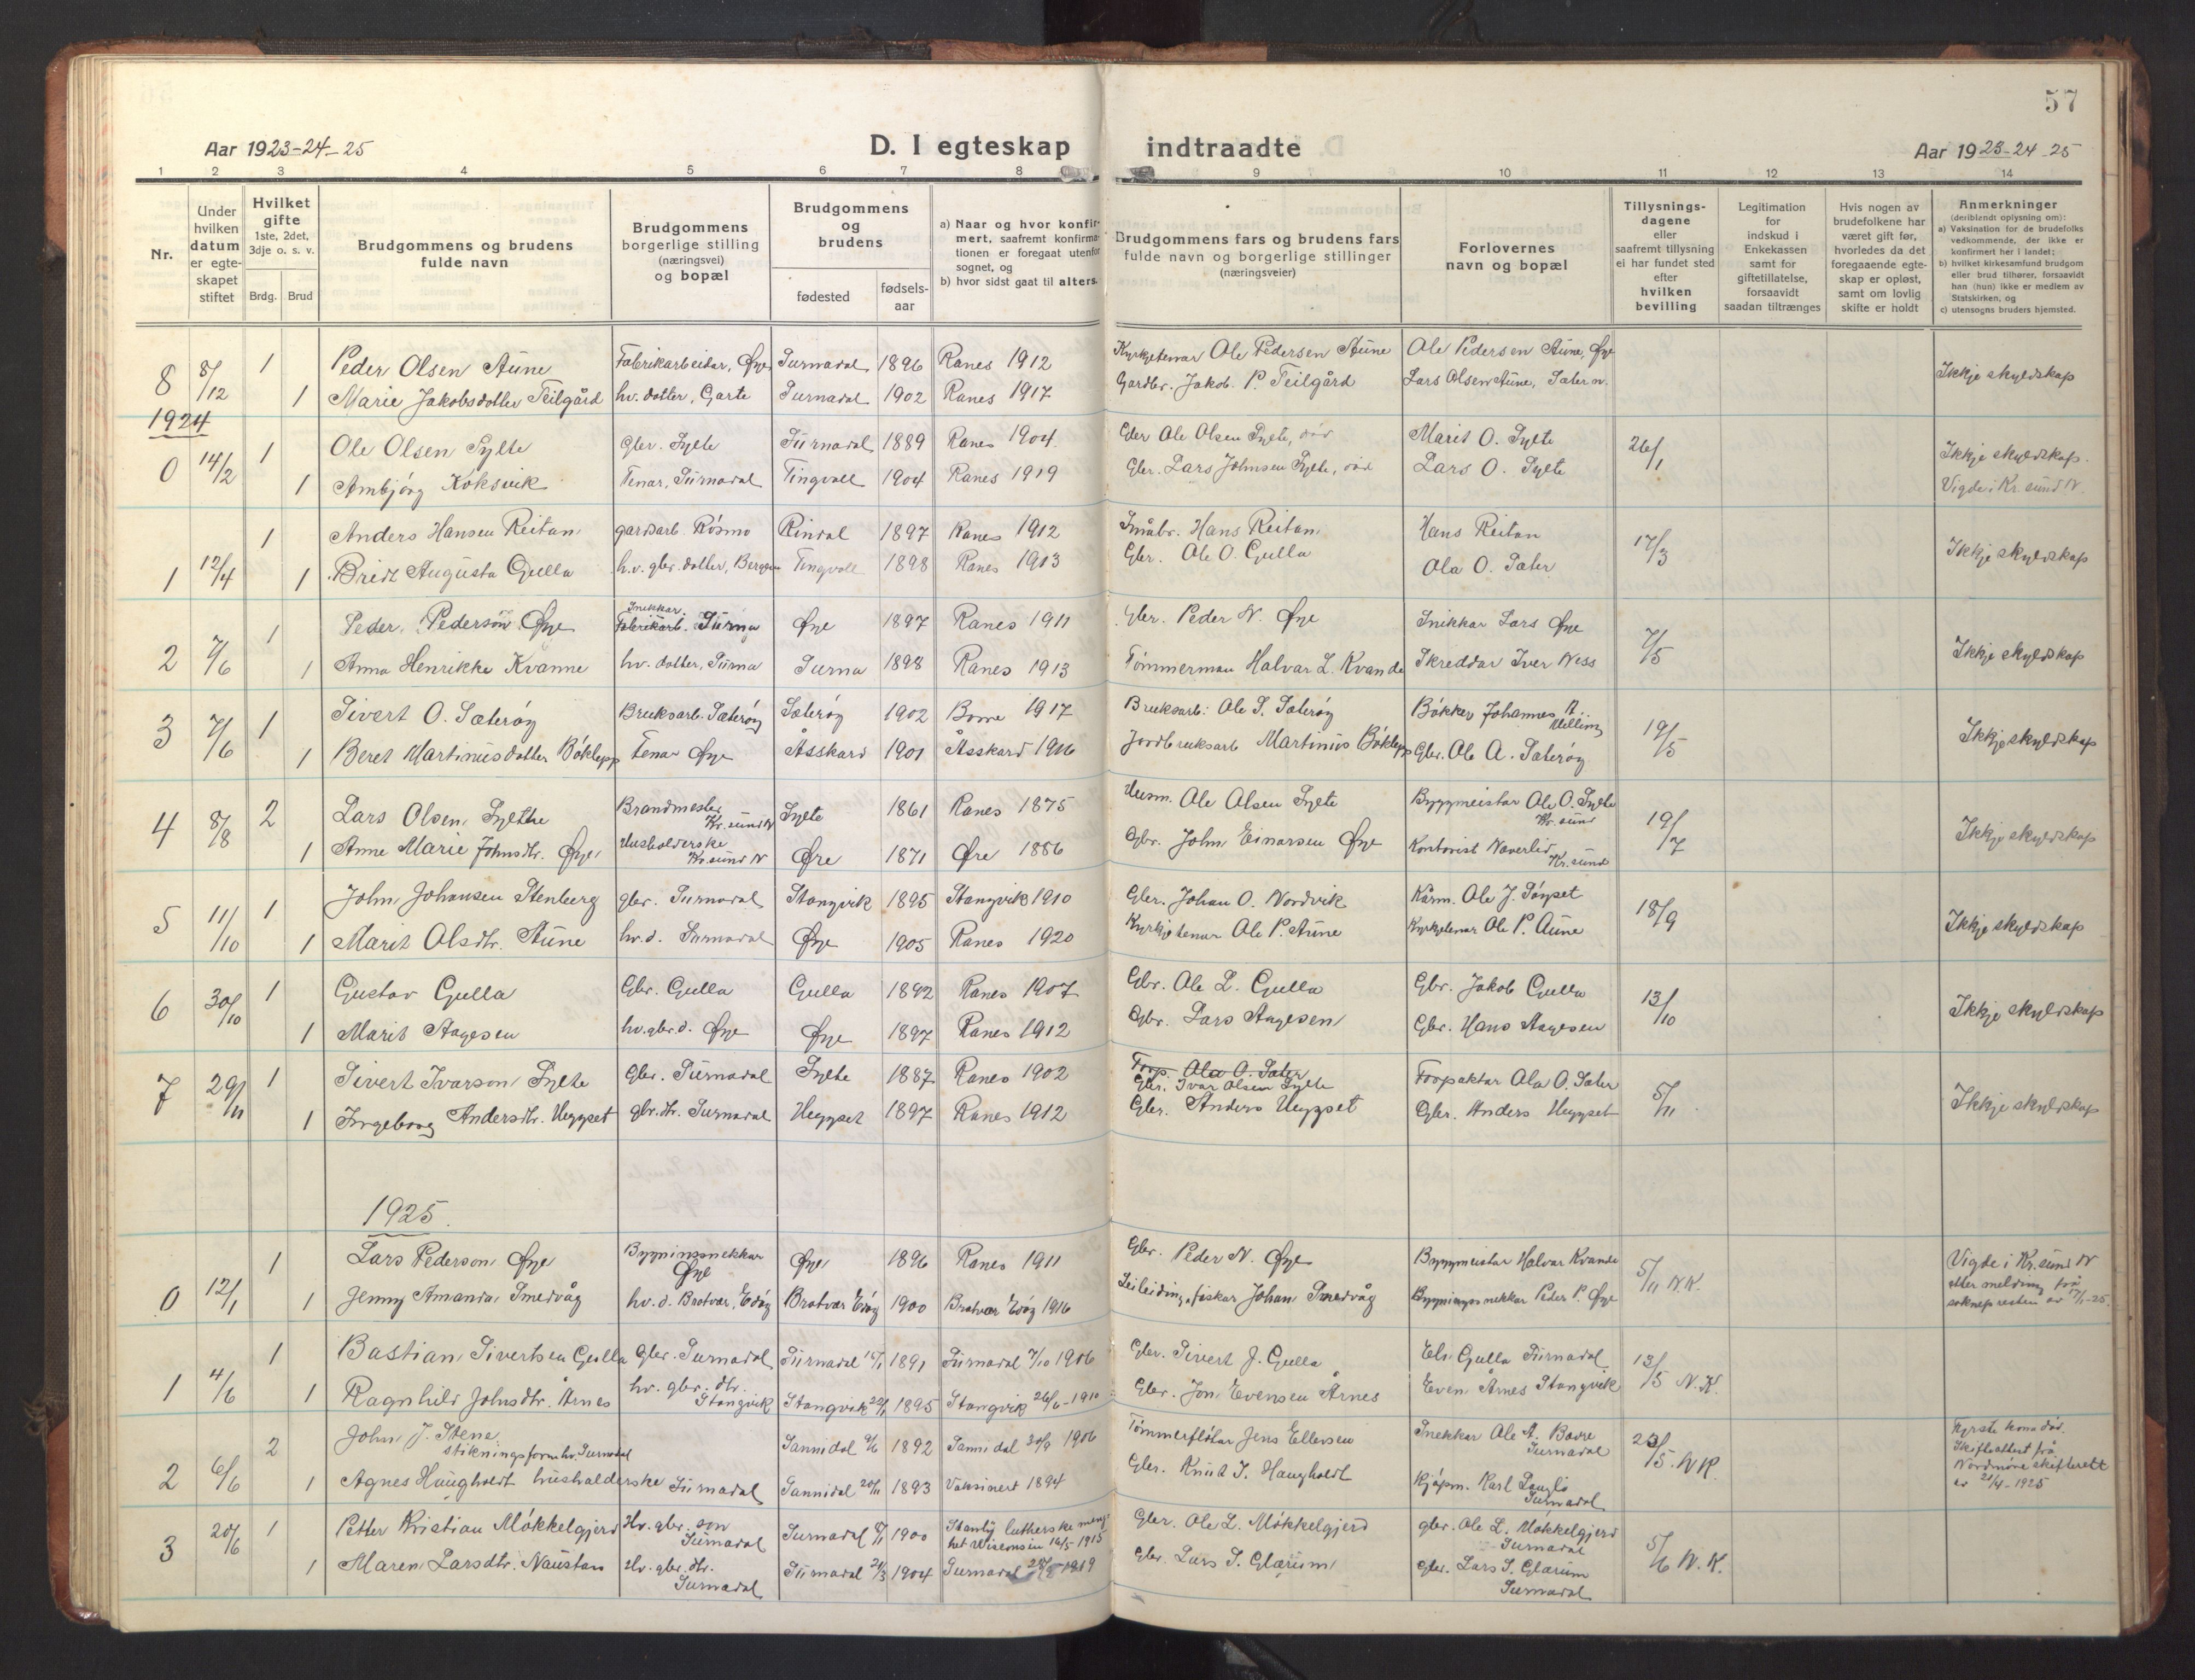 57
Aar 1923-24-25
D. I egteskap indtraadte
Aar 1923-24-25
1 2 3 4 5 6 7 8 9 10 11 12 13 14
Nr.
Under hvilken datum er egteskapet stiftet
Hvilket gifte 1ste, 2det, 3dje o. s. v.
Brdg. Brud
Brudgommens og brudens fulde navn
Brudgommens borgerlige stilling (næringsvei) og bopæl
Brudgommens og brudens
fødested
fødselsaar
a) Naar og hvor konfirmert, saafremt konfirmationen er foregaat utenfor sognet, og
b) hvor sidst gaat til alters.
Brudgommens fars og brudens fars fulde navn og borgerlige stillinger (næringsveier)
Forlovernes navn og bopæl
Tillysningsdagene eller saafremt tillysning ei har fundet sted efter hvilken bevilling
Legitimation for indskud i Enkekassen samt for giftetillatelse, forsaavidt saadan tiltrænges
Hvis nogen av brudefolkene har været gift før, hvorledes da det foregaaende egteskap er opløst, samt om lovlig skifte er holdt
Anmerkninger (deriblendt oplysning om):
a) Vaksination for de brudefolks vedkommende, der ikke er konfirmert her i landet;
b) hvilket kirkesamfund brudgom eller brud tilhører, forsaavidt han (hun) ikke er medlem av Statskirken, og
c) utensogns bruders hjemsted.
8 8/12 1 Peder Olsen Aune Fabrikarbeidar, Øye Surnadal 1896 Ranes 1912 Kyrkjetenar Ole Pedersen Aune Ole Pedersen Aune, Øye Ikkje skyldskap
1 Marie Jakobsdotter Teilgård hv. dotter, Garte Surnadal 1902 Ranes 1917 Gardbr. Jakob P. Teilgård Lars Olsen Aune, Sæter
1924
0 14/2 1 Ole Olsen Sylte Gbr. Sylte Surnadal 1889 Ranes 1904 Gbr Ole Olsen Sylte, død Marit O. Sylte 26/1 Ikkje skyldskap.
1 Ambjørg Koksvik Tenar, Surnadal Tingvoll 1904 Ranes 1919 Gbr. Lars Johnsen Sylte, død Lars O. Sylte Vigde i Kr. sund N.
1 12/4 1 Anders Hansen Reitan gardsarb. Røsmo Rindal 1897 Ranes 1912 Småbr. Hans Reitan Hans Reitan 17/3 Ikkje skyldskap
1 Brit Augusta Gulla h.v. gbr. dotter, Bergen Tingvoll 1898 Ranes 1913 Gbr. Ole O. Gulla Ola O. Sæter
2 7/6 1 Peder Pederson Øye Snikkar Fabrikarb. Surna Øye 1897 Ranes 1911 Gbr. Peder N. Øye Snikkar Lars Øye 7/5 Ikkje skyldskap
1 Anna Henrikke Kvanne hv. dotter, Surna Surna 1898 Ranes 1913 Tømmerman Halvar L. Kvande Skreddar Iver Ness
3 7/6 1 Sivert O. Sæterøy Bruksarb. Sæterøy Sæterøy 1902 Bome 1917 Bruksarb: Ole S. Sæterøy Bøkker Johannes A. Melling 19/5 Ikkje skyldskap
1 Beret Martinusdotter Bøklepp Tenar Øye Åsskard 1901 Åsskard 1916 Jordbruksarb Martinus Bøklepp Gbr. Ole A. Sæterøy
4 8/8 2 Lars Olsen Sylthe Brandmester Kr.sund N Sylte 1861 Ranes 1875 Husm. Ole Olsen Sylte Byggmeistar Ole O. Sylte Kr.sund 19/7 Ikkje skyldskap
1 Anne Marie Johnsdtr. Øye Husholderske Kr.sund N Øre 1871 Øre 1886 Gbr. John Einarsen Øye Kontorist Naverlid Kr.sund
5 11/10 1 John Johansen Stenberg gbr. Surnadal Stangvik 1895 Stangvik 1910 Gbr. Johan O. Nordvik Kårm. Ole J. Søyset 18/9 Ikkje skyldskap
1 Marit Olsdtr. Aune hv.d. Surnadal Øye 1905 Ranes 1920 Kyrkjetenar Ole P. Aune Kyrkjetenar Ole P. Aune
6 30/10 1 Gustav Gulla Gbr. Gulla Gulla 1892 Ranes 1907 Gbr. Ole L. Gulla Gbr. Jakob Gulla 13/10 Ikkje skyldskap
1 Marit Aagesen hv.gbr.d. Øye Øye 1897 Ranes 1912 Gbr. Lars Aagesen Gbr. Hans Aagesen
7 29/11 1 Sivert Ivarson Sylte Gbr. Surnadal Sylte 1887 Ranes 1902 Forp. Ola O. Sæter Gbr. Ivar Olsen Sylte Forpaktar Ola O. Sæter 5/11 Ikkje skyldskap
1 Ingeborg Andersdtr. Heggset gbr.dtr. Surnadal Heggset 1897 Ranes 1912 Gbr. Anders Heggset Gbr. Anders Heggset
1925.
0 12/1 1 Lars Pederson Øye Bygningssnekkar Øye Øye 1896 Ranes 1911 Gbr. Peder N. Øye Byggmeistar Halvar Kvande 5/11 N.K. Vigde i Kr.sund N etter melding frå
1 Jenny Amanda Smedvåg hv. d. Brotvær, Edøy Brotvær Edøy 1900 Brotvær Edøy 1916 Leilending, fiskar Johan Smedvåg Bygningssnekkar Peder P. Øye soknepresten av 17/1-25.
1 4/6 1 Bastian Sivertsen Gulla Gbr. Surnadal Surnadal 1891 Surnadal 7/10 1906 Gbr. Sivert J. Gulla Els Gulla Surnadal 13/5 N.K.
1 Ragnhild Johnsdtr. Årnes hv. gbr. dtr. Stangvik Stangvik 1895 Stangvik 26/6-1910 Gbr. Jon Evensen Årnes Even Årnes Stangvik
2 6/6 2 John J. Stene stikningsformhv. Surnadal Sannidal 9/6 1892 Sannidal 30/9 1906 Tømmerfløtar Jens Ellefsen Snekkar Ole A. Bævre Surnadal 23/5. N.K. Fyrste kona død. Skifteattest frå
1 Agnes Haugholdt husholderske Surnadal Sannidal 20/11 1893 Vaksinert 1894 Gbr. Knut J. Haugholdt Kjøpm. Karl Langlo Surnadal Nordmøre skifterett av 21/4-1925
3 20/6 1 Petter Kristian Møkkelgjerd Hv. gbr. son Surnadal Surnadal 1900 Stanly lutherske menghet Wisconsin 16/5-1915 Gbr. Ole L. Møkkelgjerd gbr. Ole L. Møkkelgjerd Surnadal 5/6 N.K.
1 Maren Larsdtr. Naustan Hv. gbr. dtr. Surnadal Surnadal 24/3 1904 Surnadal 1919 Gbr. Lars S. Glærum gbr. Lars S. Glærum Surnadal